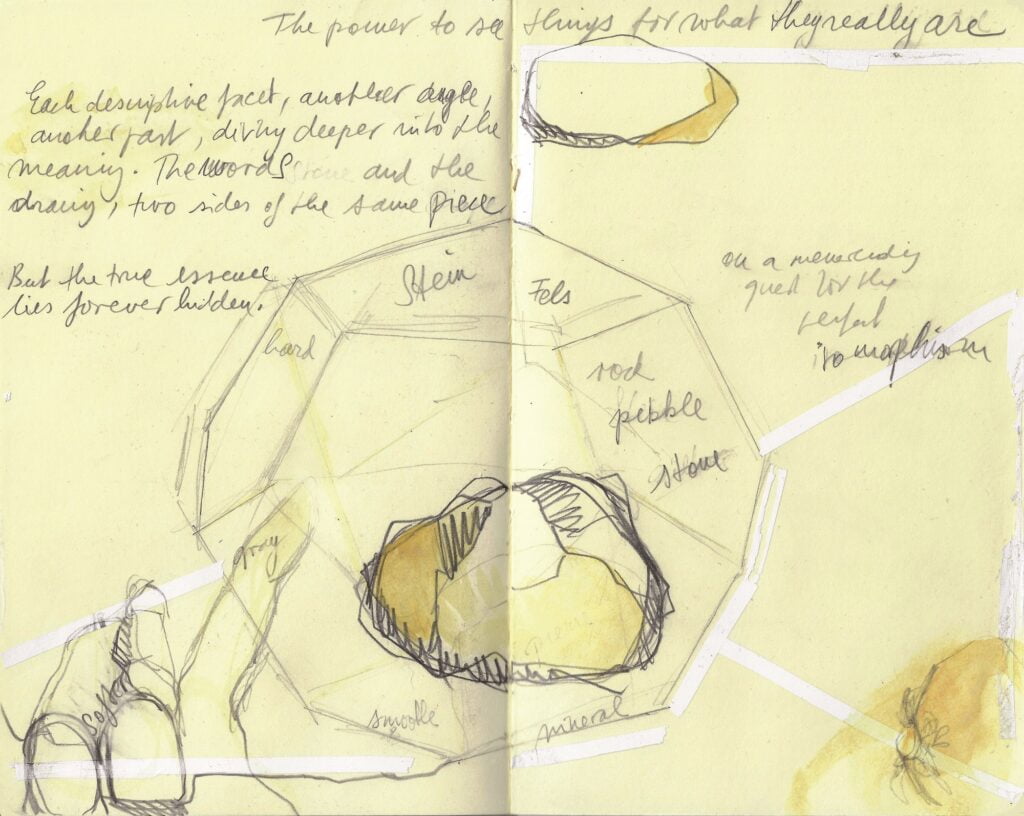 The power to see things for what they really are
Each descriptive facet, another angle,
another part, diving deeper into the
meaning. The words and the
drawing, two sides of the same piece
But the true essence
lies forever hidden.
Stein
Fels
hard
on a
quest for the
perfect
isomorphism
rock
pebble
stone
gray
soft
smooth
mineral